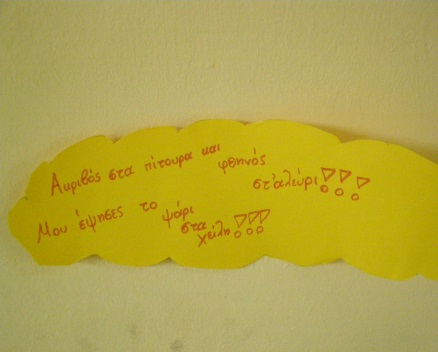 Ακριβός στα πίτουρα και φθηνός στ'αλεύρι!!!
Μου έψησες το ψάρι στα χείλη!!!